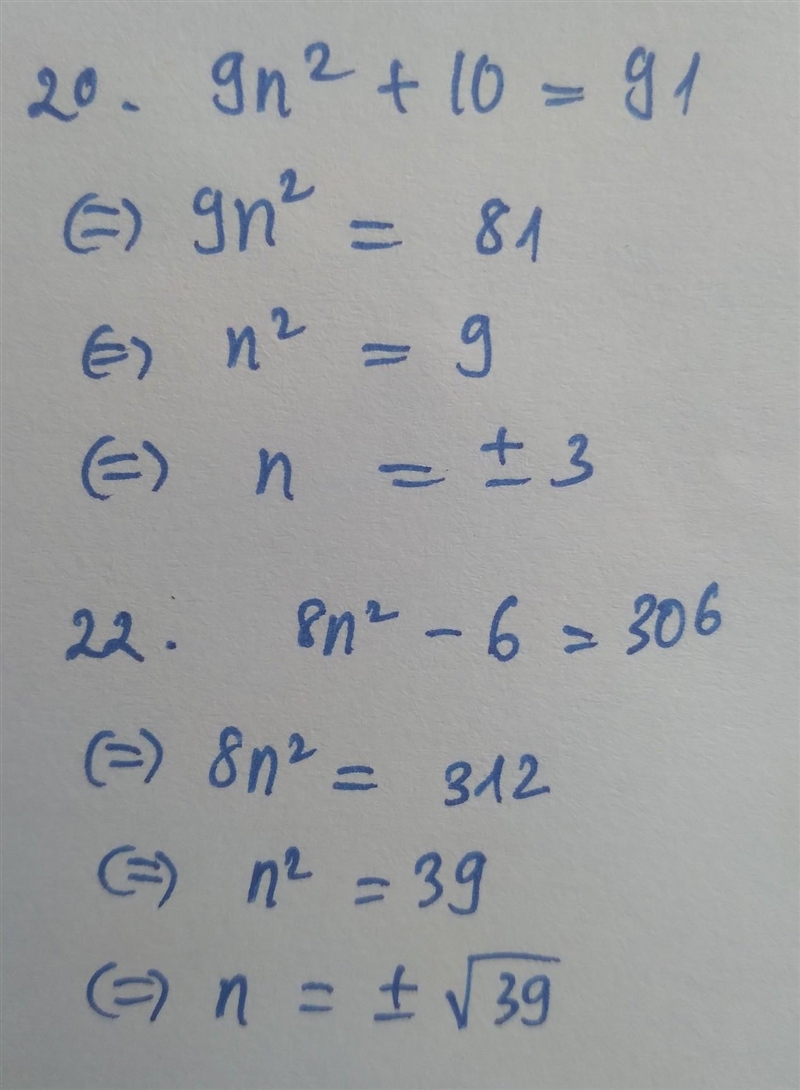 20. 9n² + 10 = 91
(=) 9n² = 81
(=) n² = 9
(=) n = ± 3
22. 8n² - 6 = 306
(=) 8n² = 312
(=) n² = 39
(=) n = ± √39